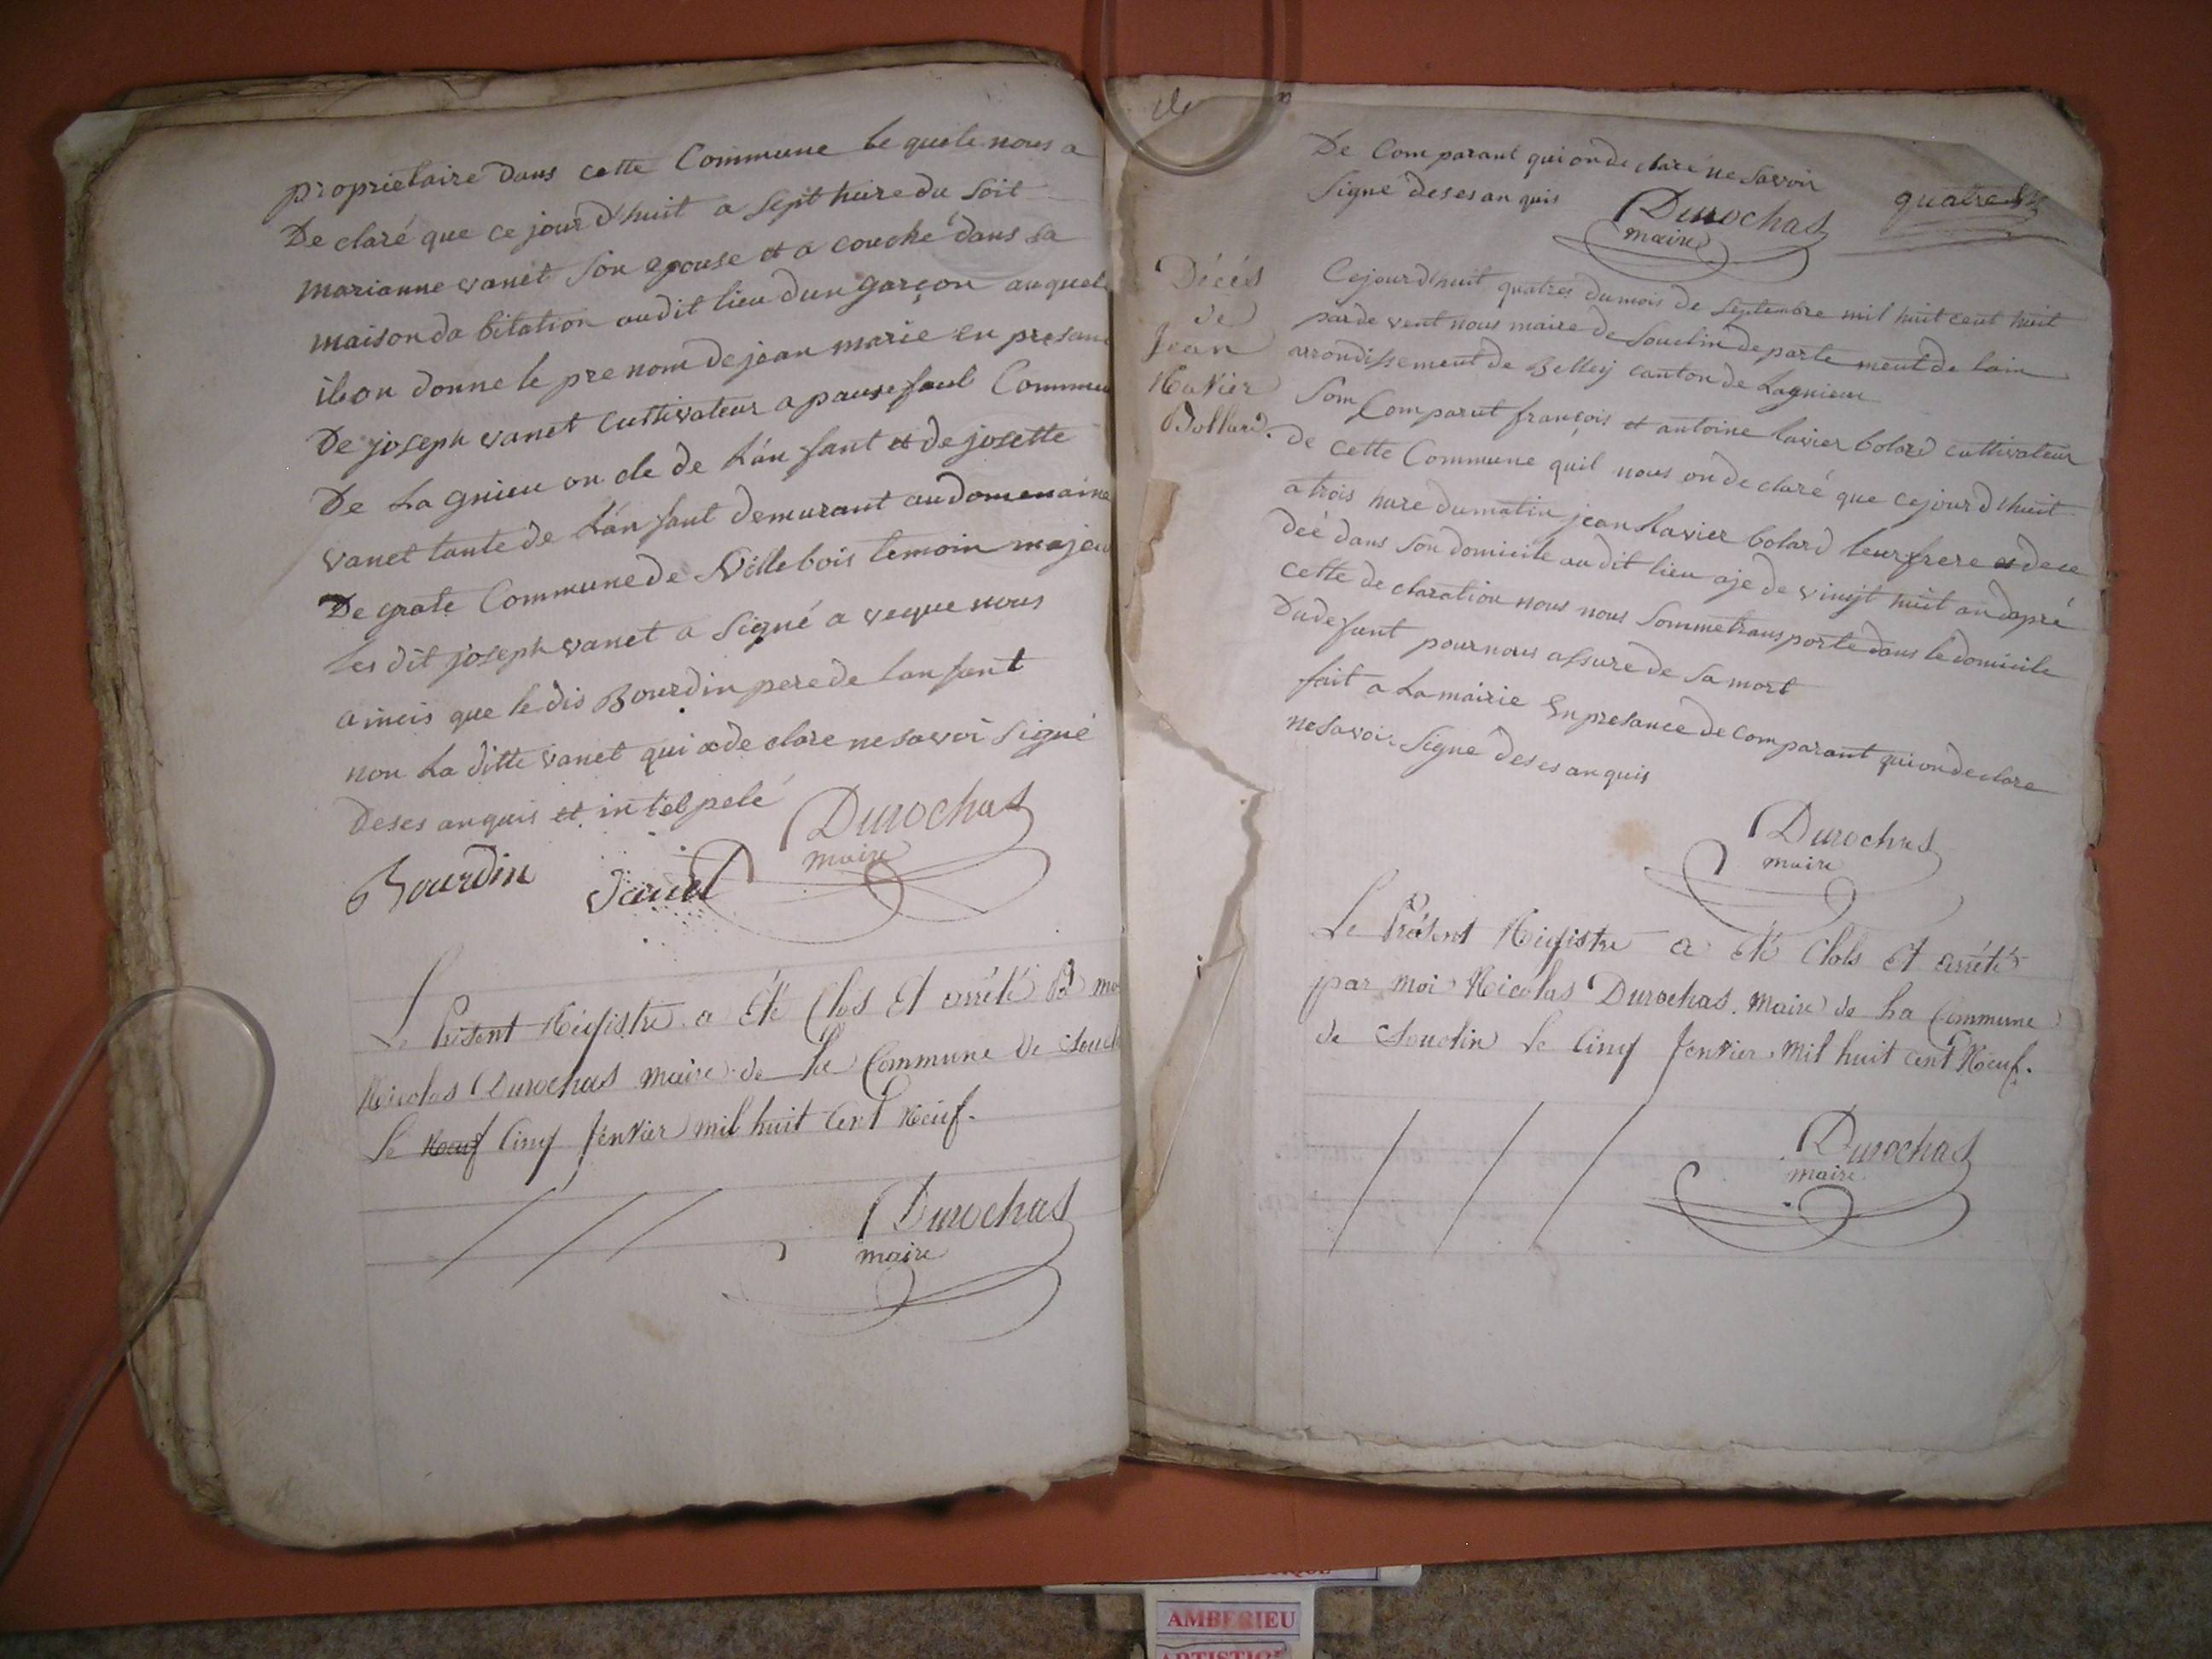 proprietaire dans cette Commune le quele nous a
De claré que ce jour d'huit a sept heure du soit
marianne vanet son epouse et a couché dans sa
maison da bitation audit lieu dun garçon auquel
ilson donne le pre nom de jean marie en presan
De joseph vanet cultivateur a pausefaul Commu
De Lagnieu on cle de L'an fant et de josette
vanet tante de L'an fant demurant au domenaine
De grate Commune de Villebois temoin majeu
les dit joseph vanet a signé a veque nous
aincis que le dis Bourdin pere de lan fant
non La ditte vanet qui a de clare ne savoi signé
deses anquis et intelpelé
Durochas
maire
Bourdin
Vanet
Le Présent Régistre a été Clos Et arrêté Par mo
Nicolas Durochas maire de la Commune de Soucl
Le Neuf Cinq Janvier mil huit Cent Neuf.
Durochas
maire
De Comparant qui on de claré ne savoir
signe deses an quis
Durochas
maire
quatre
Décés
de
Jean
Xavier
Bollard.
Cejourd'huit quatres du mois de septembre mil huit cent huit
par de vent nous maire de Souclin departe ment de lain
arrondissement de Belley canton de Lagnieu
Som Comparut françois et antoine lavier bolard cultivateur
de cette Commune quil nous on de claré que cejourd'huit
a trois hure du matin jean Xavier bolard leur frere a dece
deé dans son domicile au dit lieu aje de vingt huit an dapré
cette de claration nous nous somme transporte dans le domicile
du de funt pour nous assure de sa mort
fait a La mairie En presance de comparant qui on de clare
ne savoir signé deses an quis
Durochas
maire
Le Présent Régistre a été Clos Et arrêté
par moi Nicolas Durochas maire de La Commune
de Souclin le Cinq Janvier mil huit cent Neuf.
Durochas
maire
AMBERIEU
ARTISTIQUE